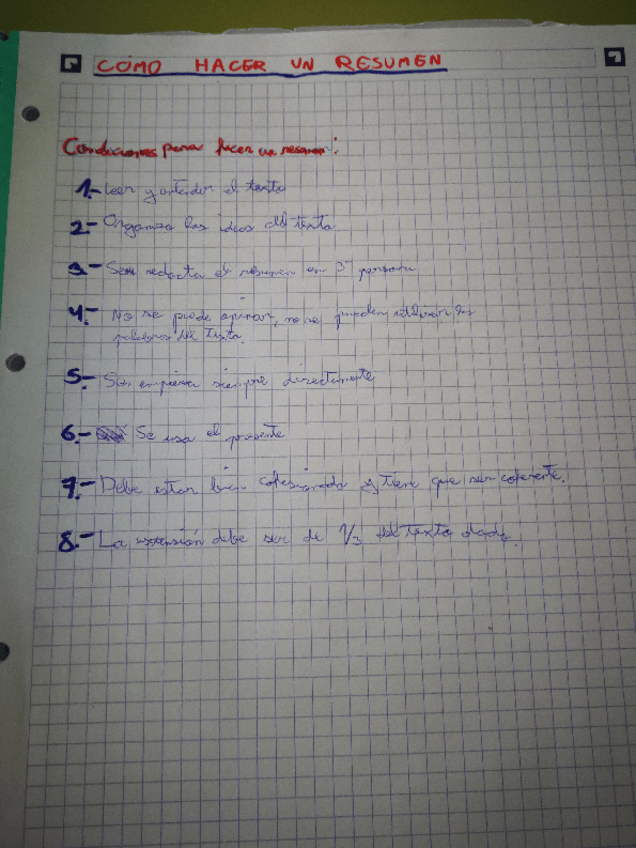 COMO HACER UN RESUMEN
Condiciones para hacer un resumen:
1.- Leer y entender el texto
2.- Organizo las ideas del texto
3.- Se redacta el resumen en 3ª persona
4.- No se puede opinar, no se pueden utilizar las
palabras del texto.
5.- Se empieza siempre directamente
6.- Se usa el presente
7.- Debe estar bien cohesionada y tiene que ser coherente.
8.- La extensión debe ser de 1/3 del texto dado.